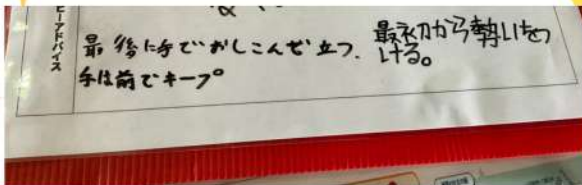 ビーアドバイス
最後に手でおしこんで立つ.
手は前でキープ
最初から勢いをつ
ける。